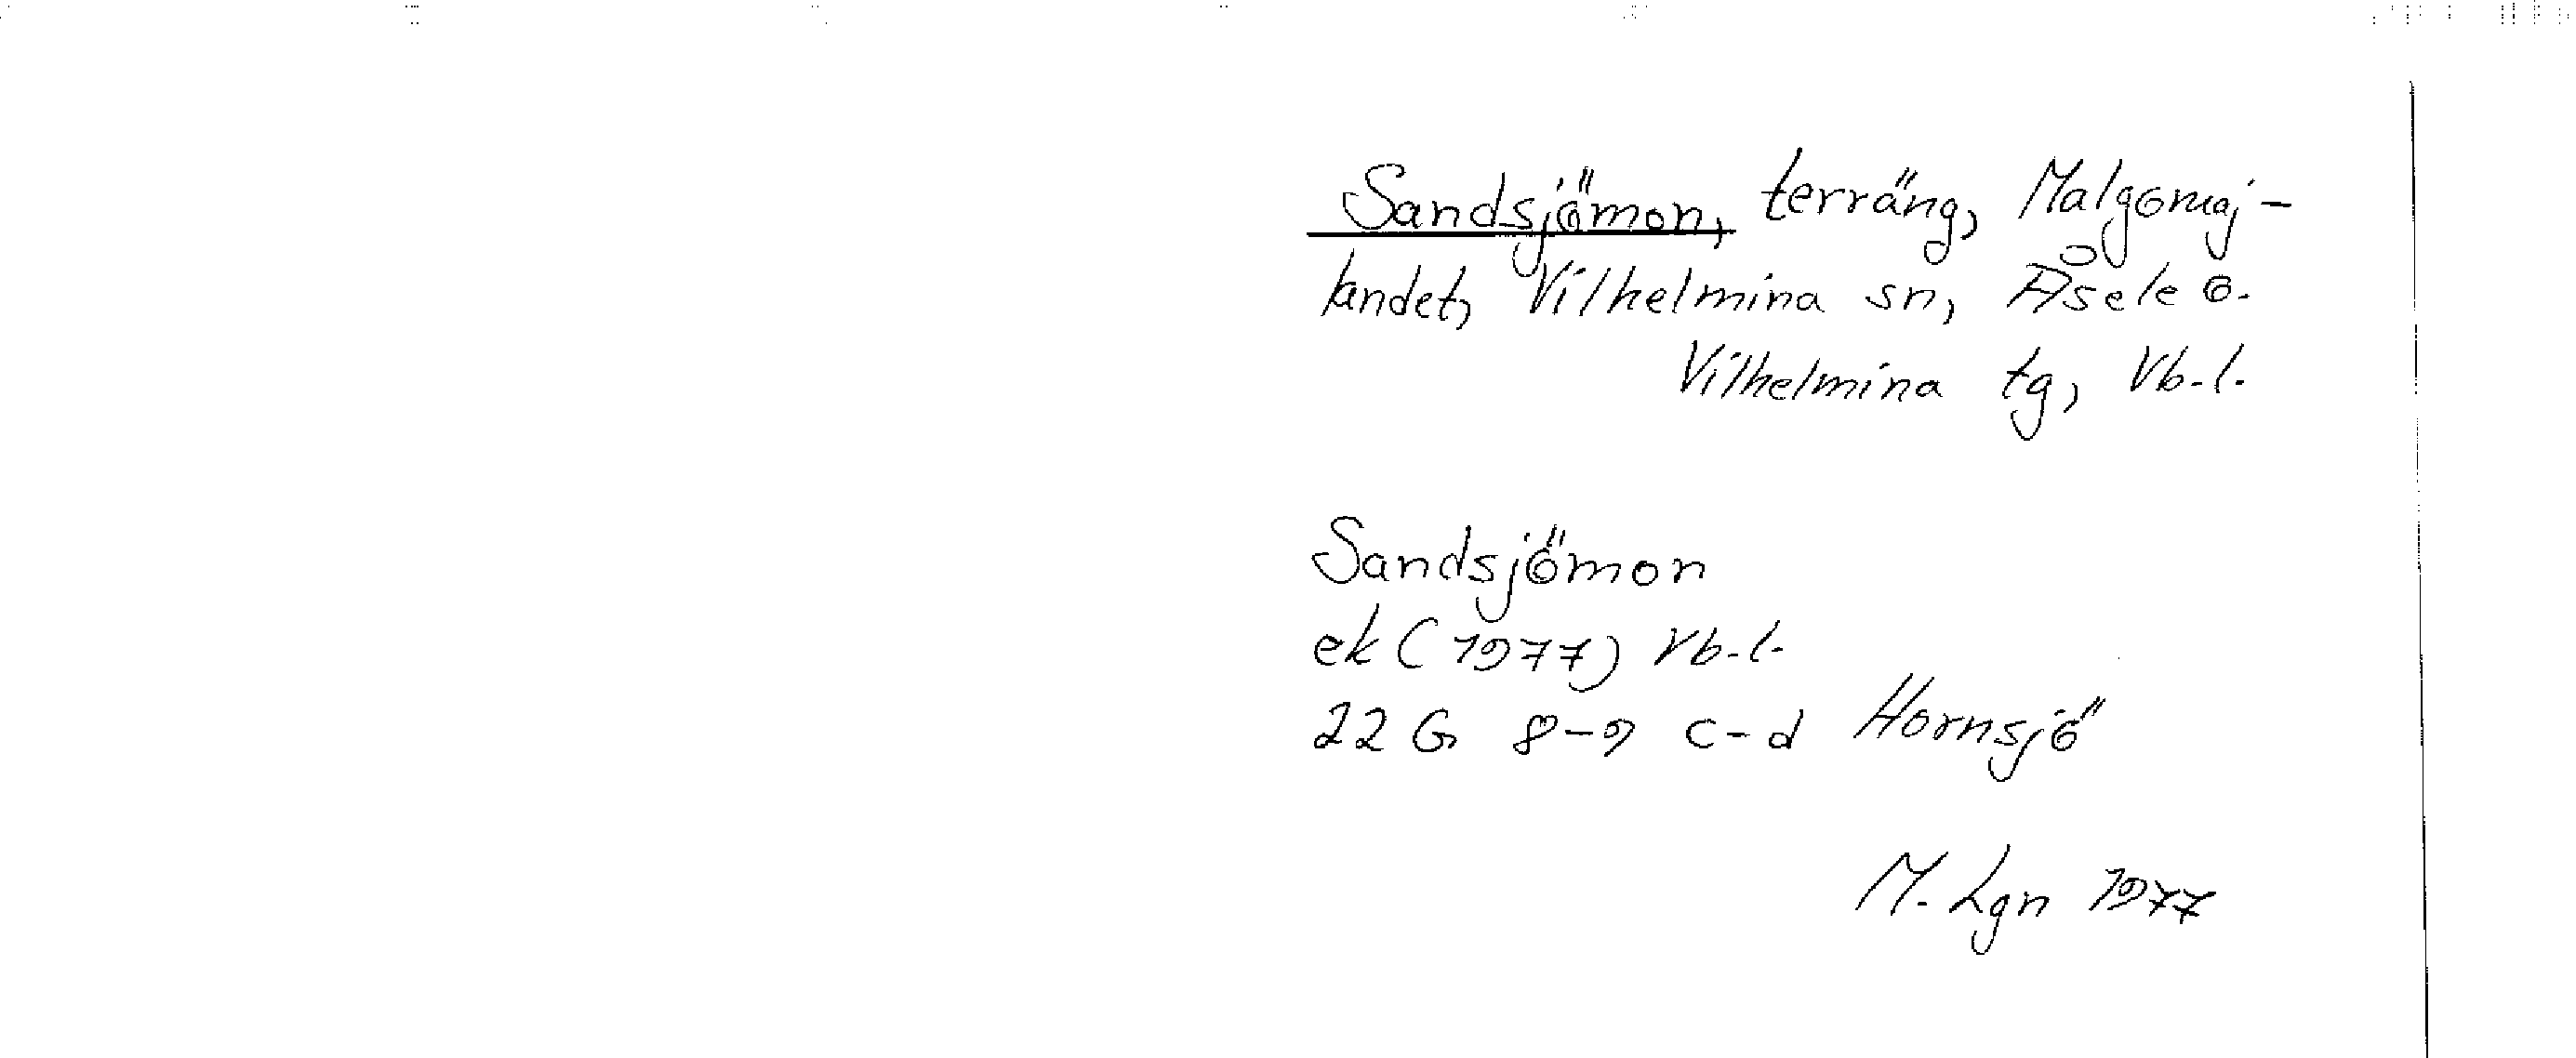 Sandsjömon, terräng, Malgomaj-
landet, Vilhelmina sn, Åsele o.
Vilhelmina tg, Vb.l.
Sandsjömon
ek (1977) Vb.l.
22 G 8-9 c-d Hornsjö
M. Lgn 1977